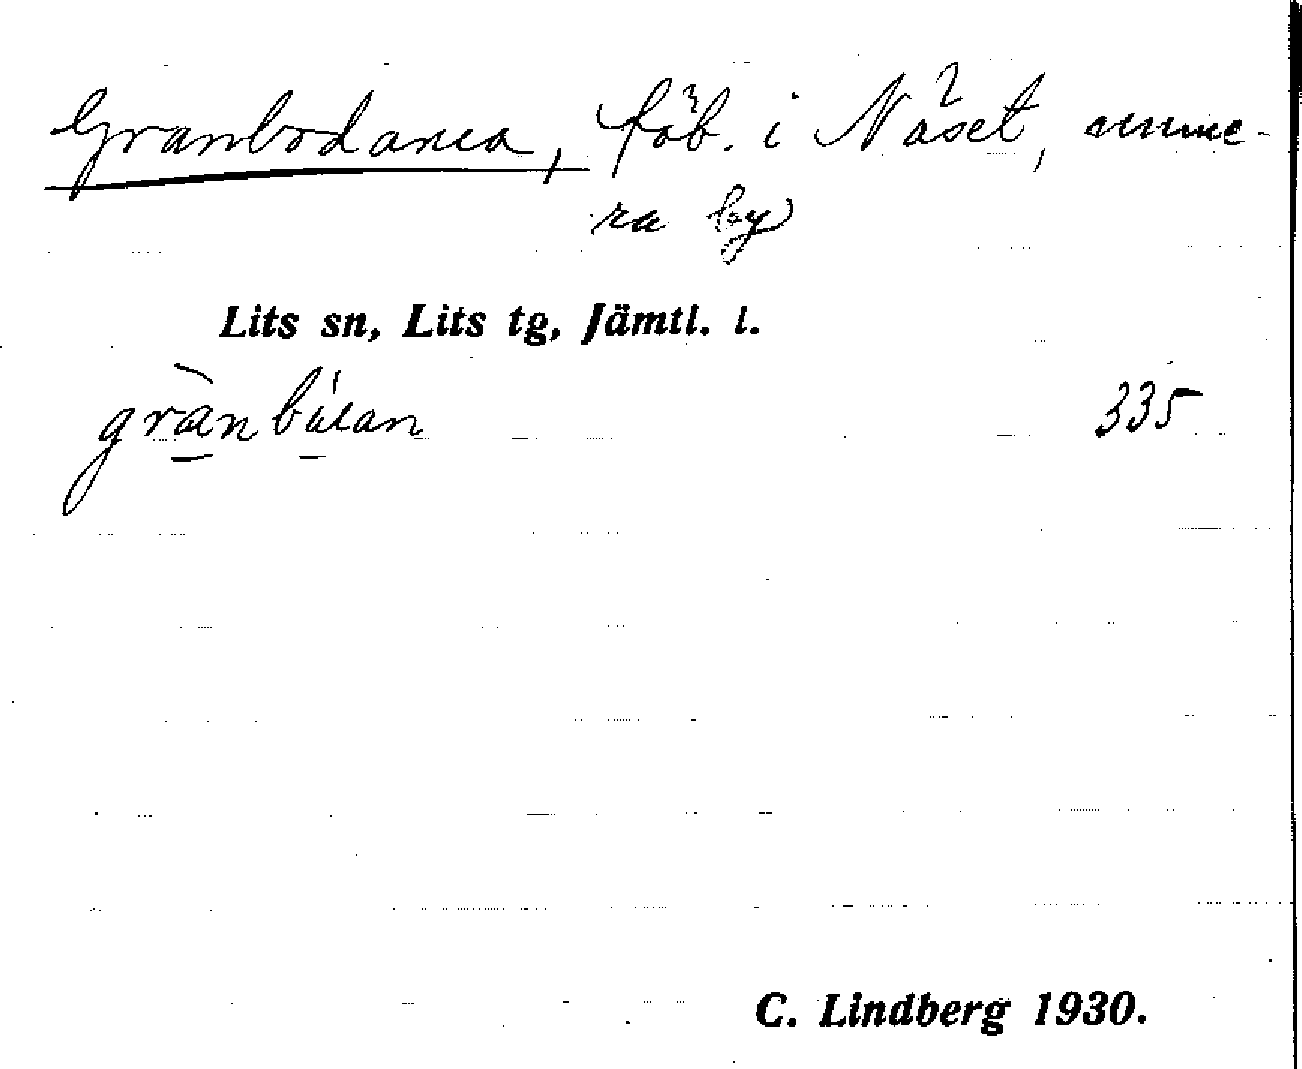 Granbodarna, fäb. i Näset, nume-
ra by
Lits sn, Lits tg, Jämtl. l.
335
C. Lindberg 1930.